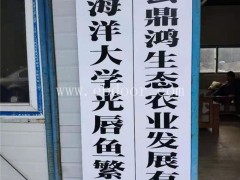 海洋大学光唇鱼繁
鼎鸿生态农业发展有